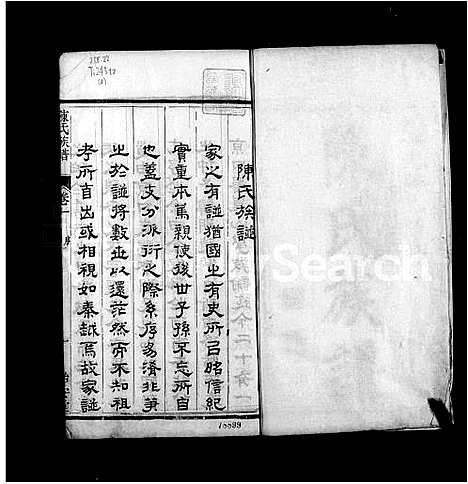 陳氏族譜
家之有譜猶國之有史所以昭信紀
實重本篤親使後世子孫不忘所自
也蓋支分派衍之際系序易淆非筆
之於譜將數世以還茫然而不知祖
考所自出或相視如秦越焉故家譜
陳氏族譜
卷一
序
一
18899
Search